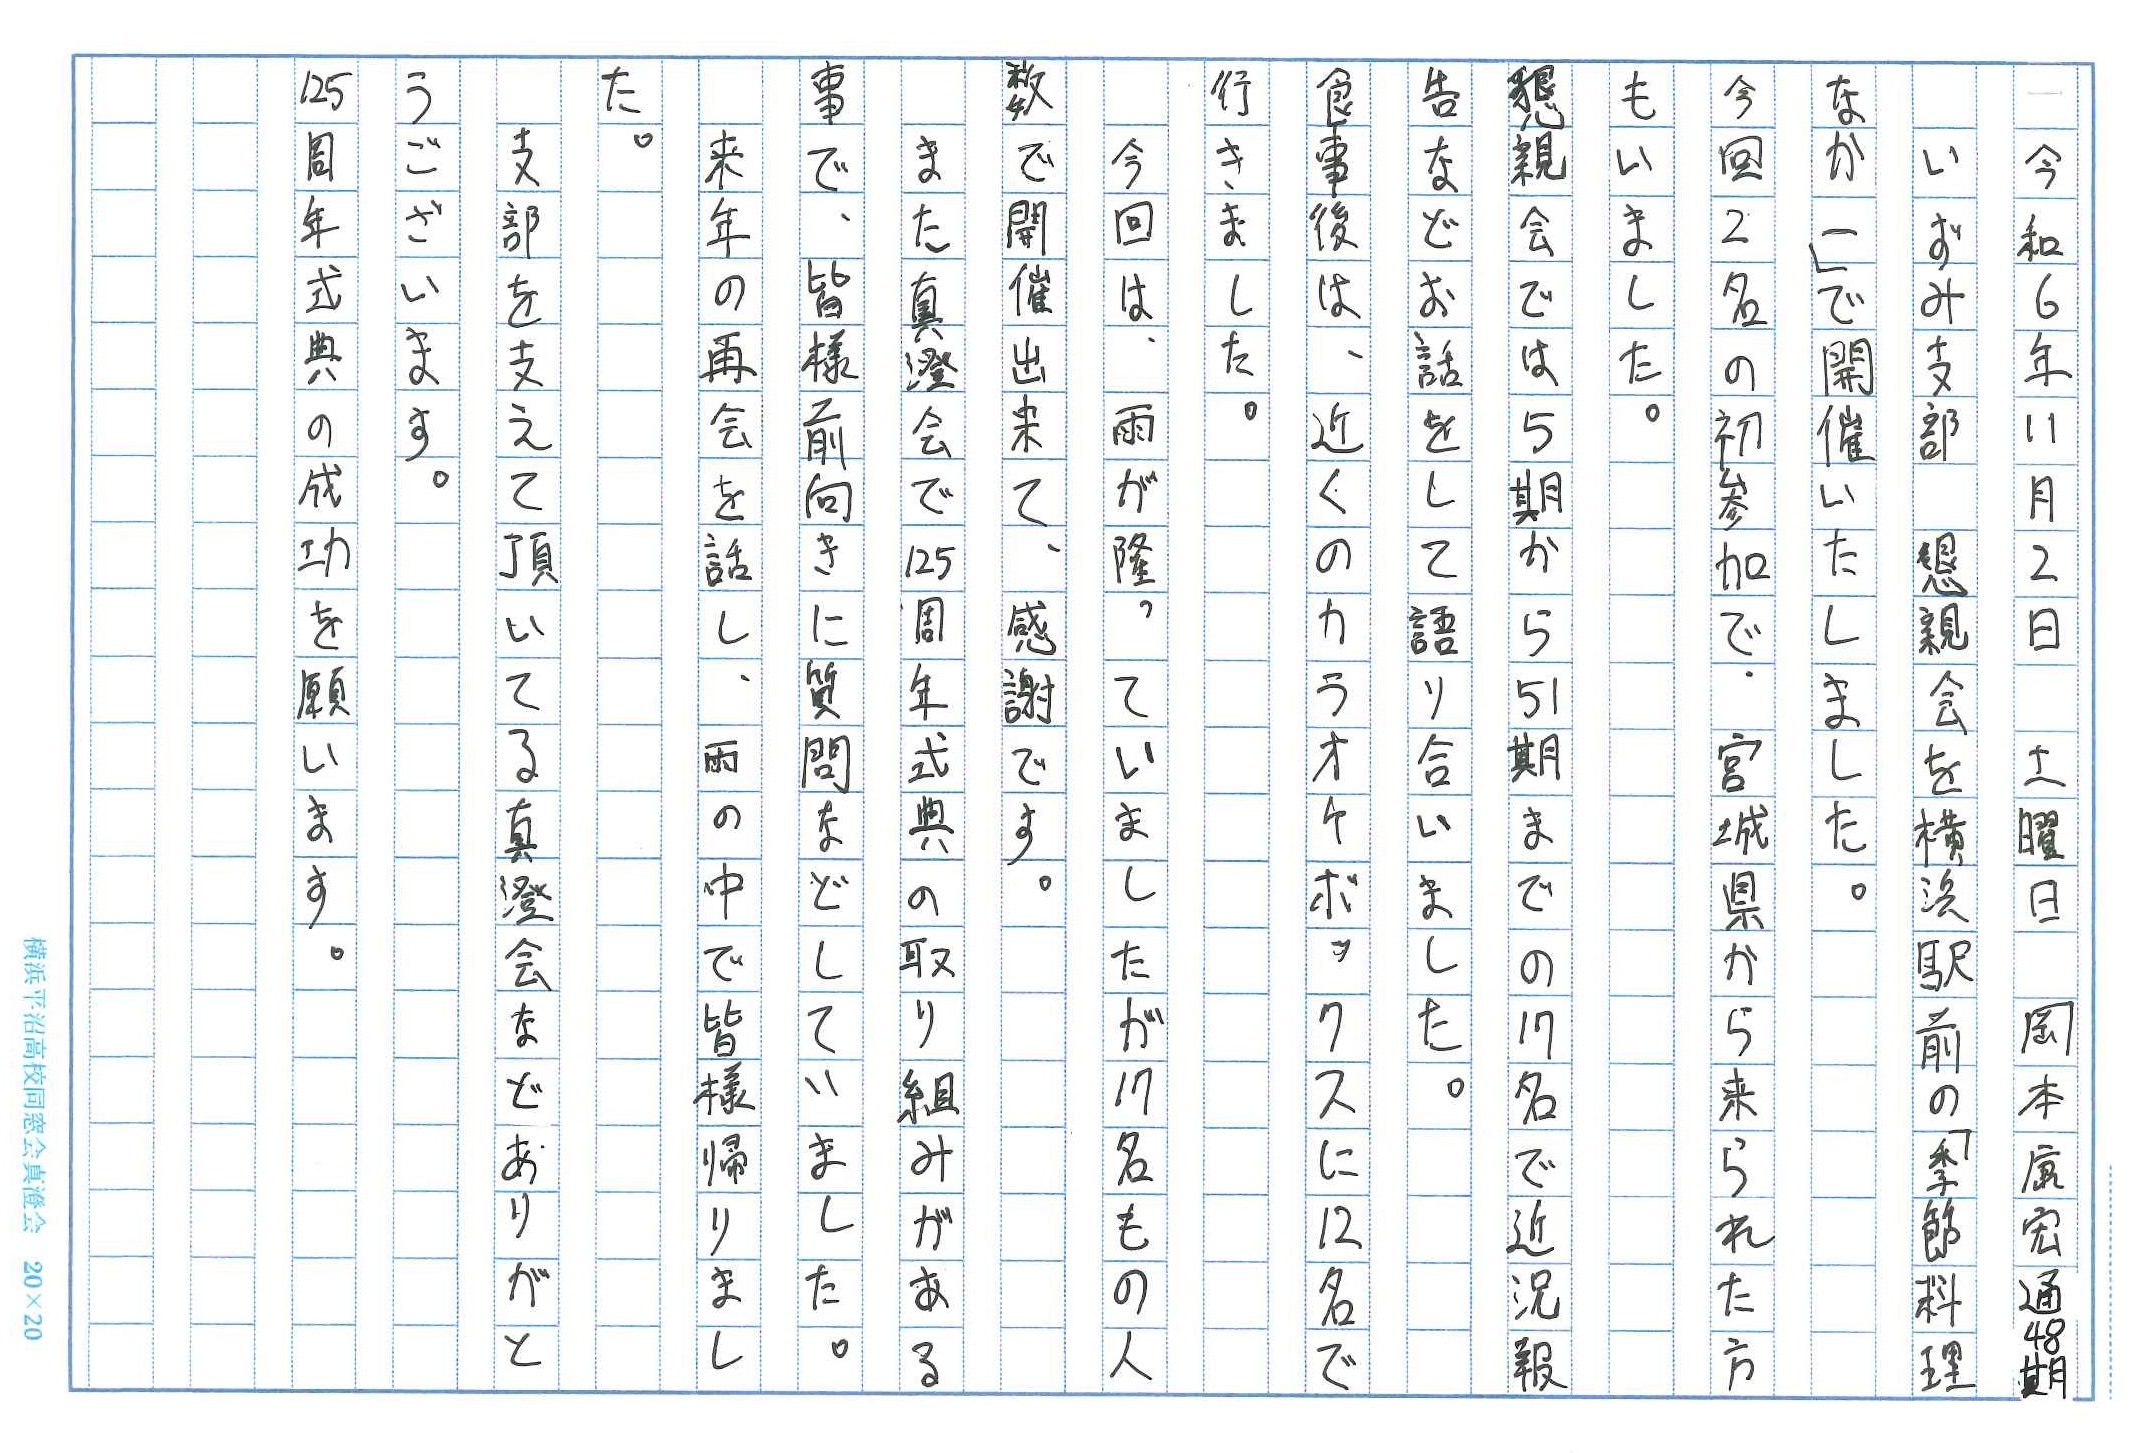 今和6年11月2日 土曜日 岡本康宏通48期
いずみ支部 懇親会を横浜駅前の「季節料理
なか一」で開催いたしました。
今回2名の初参加で、宮城県から来られた方
もいました。
懇親会では5期から51期までの17名で近況報
告などお話をして語り合いました。
食事後は、近くのカラオケボックスに12名で
行きました。
今回は、雨が降っていましたが17名もの人
数で開催出来て、感謝です。
また真澄会で125周年式典の取り組みがある
事で、皆様前向きに質問などしていました。
来年の再会を話し、雨の中で皆様帰りまし
た。
支部を支えて頂いてる真澄会などありがと
うございます。
125周年式典の成功を願います。
横浜平沼高校同窓会真澄会 20×20